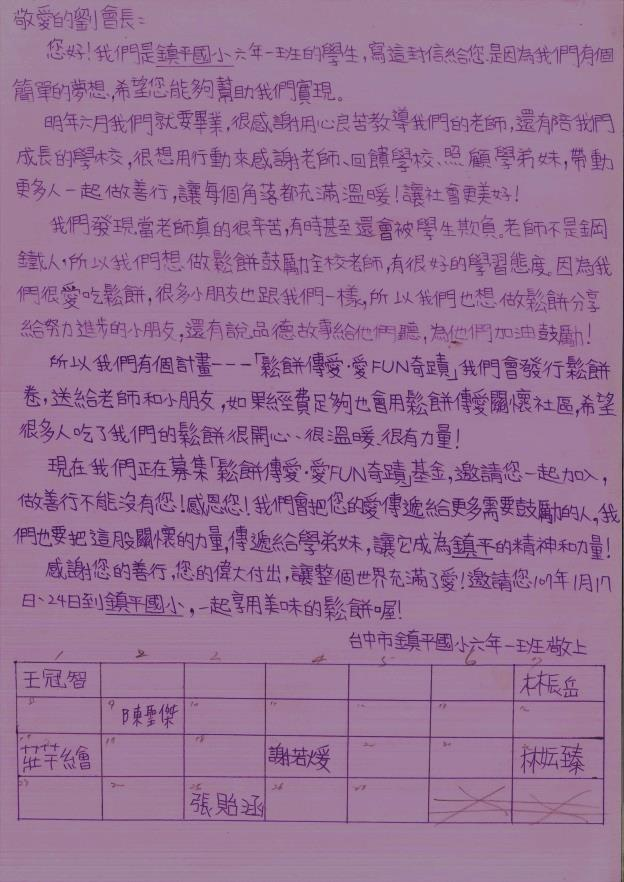 敬愛的劉會長：
您好！我們是鎮平國小六年一班的學生，寫這封信給您.是因為我們有個
簡單的夢想，希望您能夠幫助我們實現。
明年六月我們就要畢業，很感謝用心良苦教導我們的老師，還有陪我們
成長的學校，很想用行動來感謝老師、回饋學校、照顧學弟妹，帶動
更多人一起做善行，讓每個角落都充滿溫暖！讓社會更美好！
我們發現當老師真的很辛苦，有時甚至還會被學生欺負。老師不是鋼
鐵人，所以我們想做鬆餅鼓勵全校老師，有很好的學習態度。因為我
們很愛吃鬆餅，很多小朋友也跟我們一樣，所以我們也想做鬆餅分享
給努力進步的小朋友，還有說品德故事給他們聽，為他們加油鼓勵！
所以我們有個計畫---「鬆餅傳愛·愛FUN奇蹟」我們會發行鬆餅
卷，送給老師和小朋友，如果經費足夠也會用鬆餅傳愛關懷社區，希望
很多人吃了我們的鬆餅很開心、很溫暖、很有力量！
現在我們正在募集「鬆餅傳愛·愛FUN奇蹟」基金，邀請您一起加入，
做善行不能沒有您！感恩您！我們會把您的愛傳遞給更多需要鼓勵的人，我
們也要把這股關懷的力量，傳遞給學弟妹，讓它成為鎮平的精神和力量！
感謝您的善行，您的偉大付出，讓整個世界充滿了愛！邀請您107年1月17
日、24日到鎮平國小，一起享用美味的鬆餅喔！
台中市鎮平國小六年一班敬上
1 2 3 4 5 6 7
王冠智 林辰岳
8 9 陳聖傑 10 11 12 13
莊芊繪 謝若煖 林妘臻
張貽涵